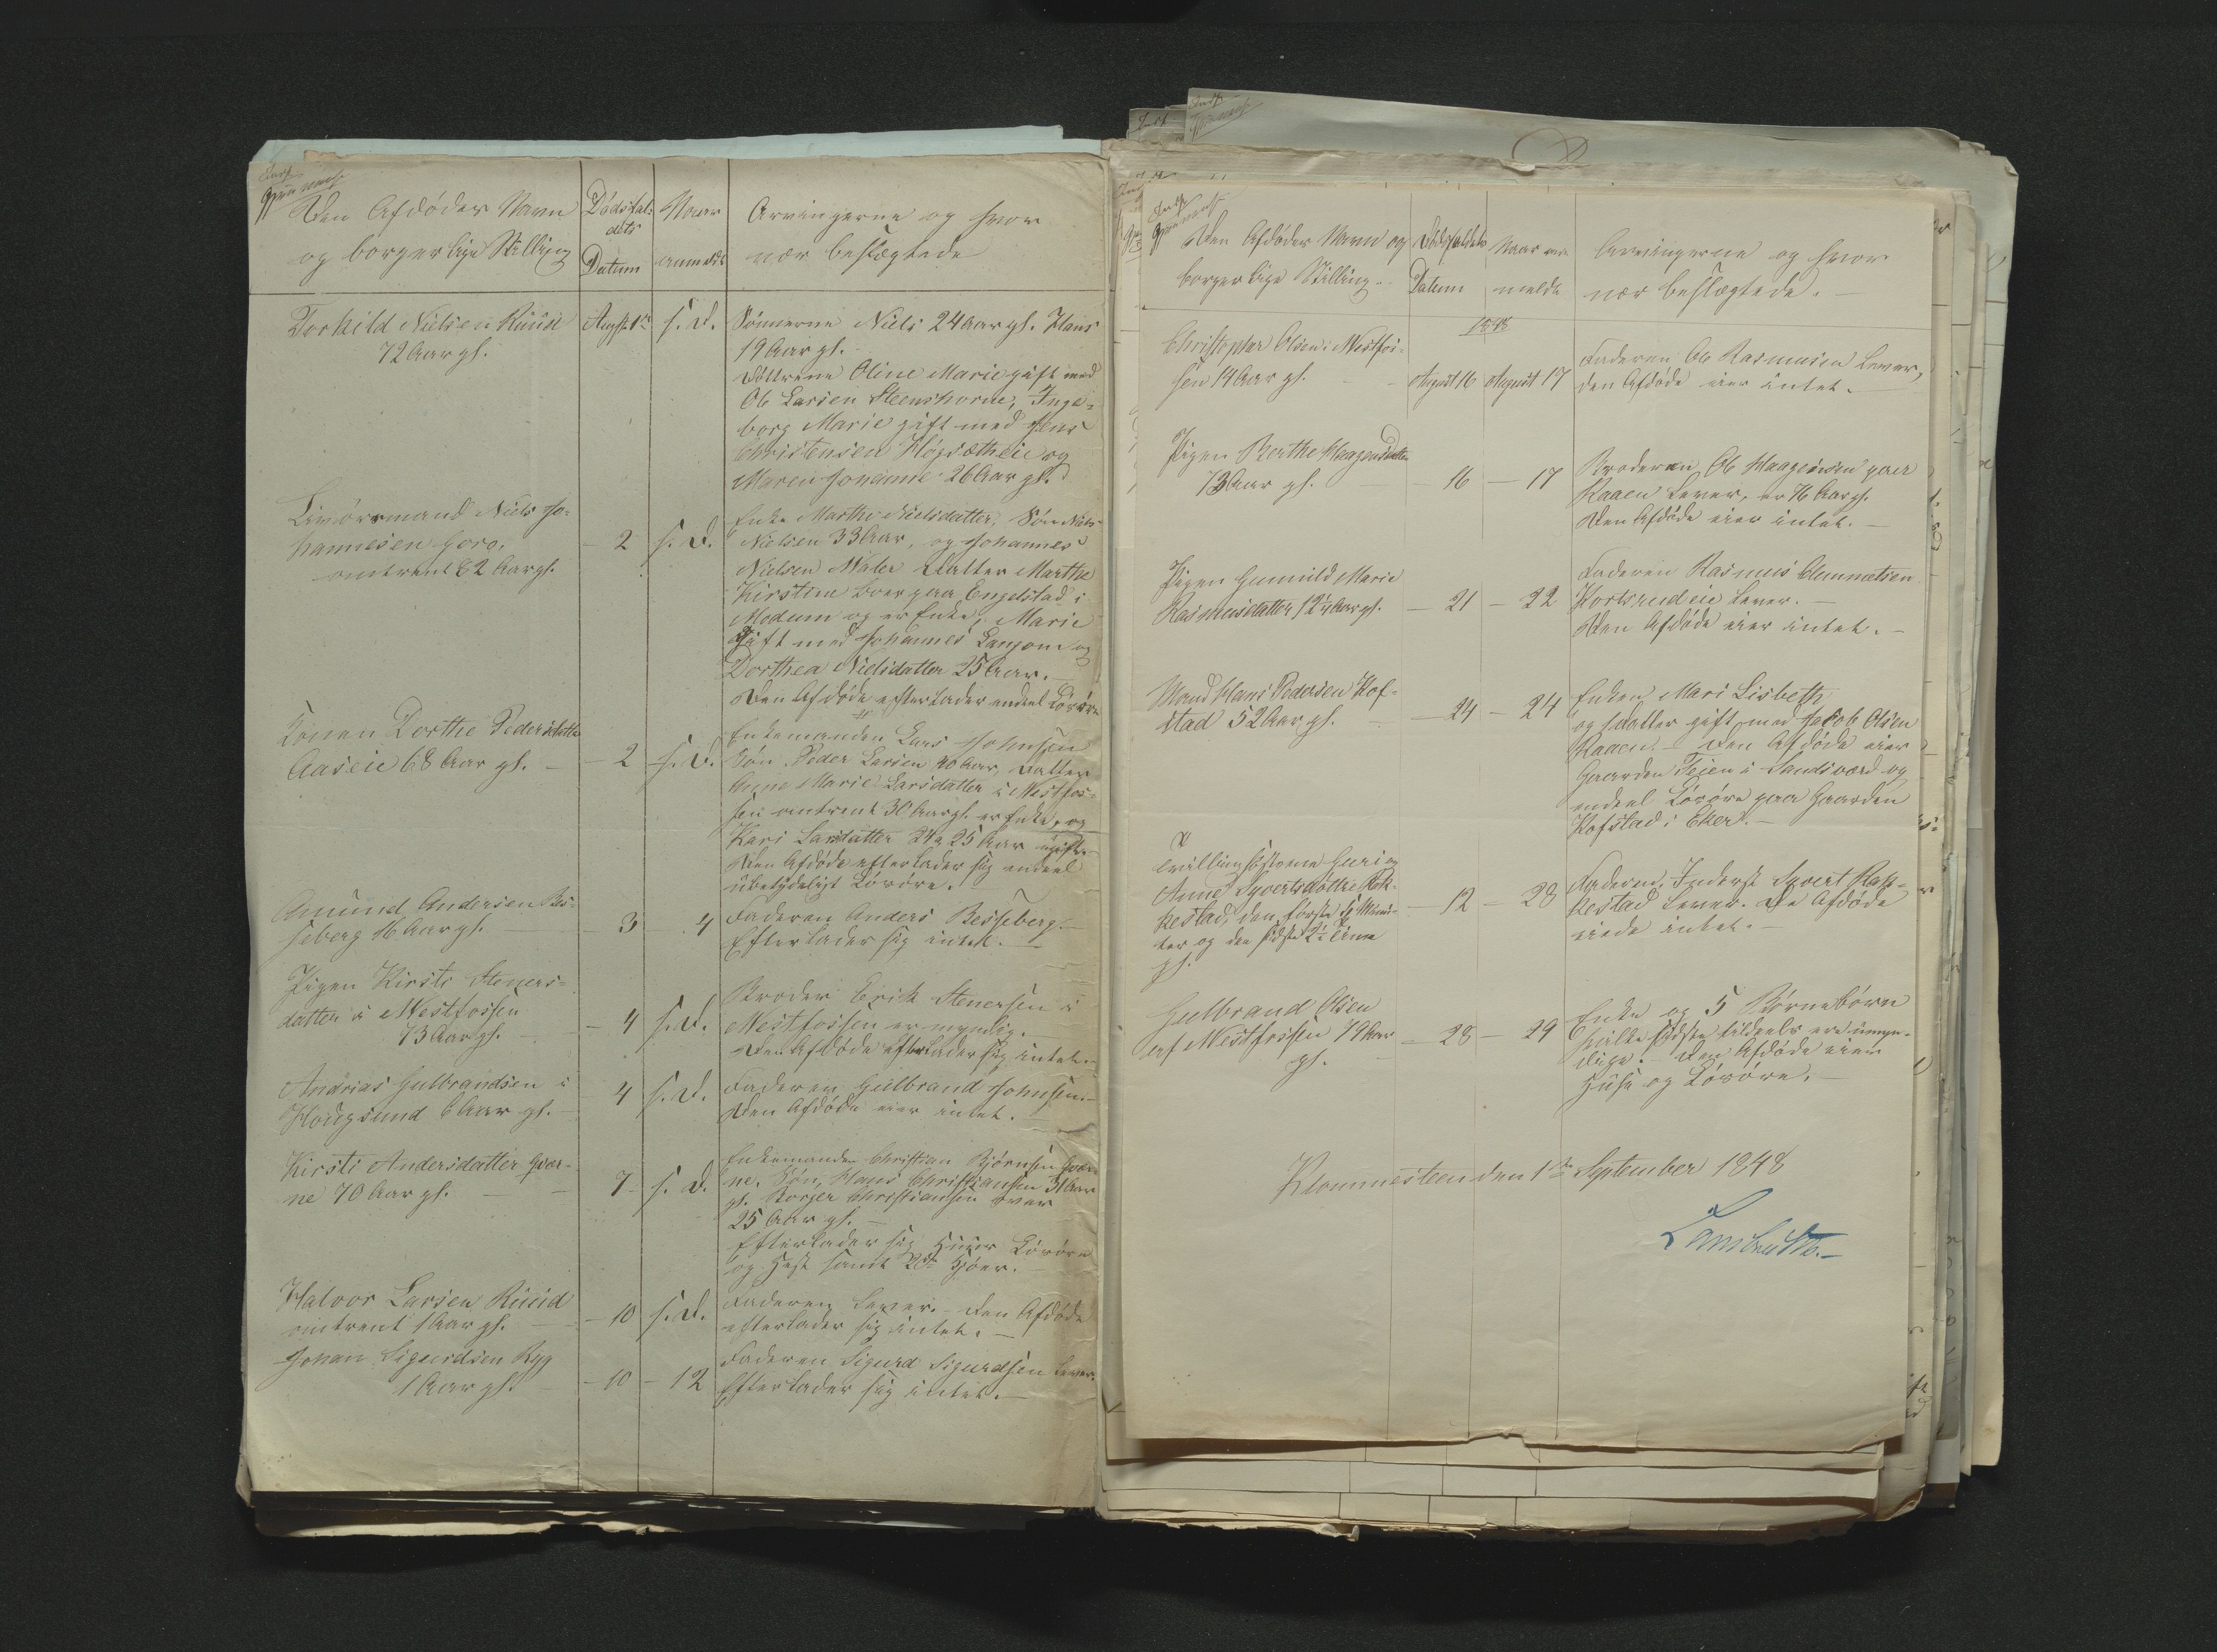 Den Afdødes Navn
og borgerlige Stilling
Dødsfal-
dets
Datum
Naar
anmeldt
Arvingerne og hvor
nær beslægtede
Torkild Nielsen Ruud
72 Aar gl.
August 1ste
s. D.
Sønnerne Niels 24 Aar gl. Hans
19 Aar gl.
Døttrene Oline Marie gift med
Ole Larsen Steenshorne, Inge-
borg Marie gift med Jens
Christensen Høgsætheie og
Maren Johanne 26 Aar gl.
Niels Jo-
hannesen Horo,
omtrent 82 Aar gl.
- 2
s. D.
Enke Marthe Nielsdatter, Søn Niels
Nielsen 33 Aar, og Johannes
Nielsen Maler Datter Marthe
Kirstine boer paa Engelstad i
Modum og er Enke, Marie
gift med Johannes Langom og
Dorthea Nielsdatter 25 Aar.
Den Afdøde efterlader endeel Løsøre
Konen Dorthe Pedersdatter
Aaseie 68 Aar gl. -
- 2
s. D.
Enkemanden Lars Johnsen
Søn Peder Larsen 40 Aar, Datter
Anne Marie Larsdatter i Westfos-
sen omtrent 30 Aar gl. er Enke, og
Kari Larsdatter 24 a 25 Aar ugift.
Den Afdøde efterlader sig endeel
ubetydeligt Løsøre.
Amund Andersen Bes-
seberg 16 Aar gl.
- 3
- 4
Faderen Anders Besseberg.
Efterlader sig intet. -
Pigen Kirsti Steners-
datter i Westfossen
73 Aar gl.
- 4
s. D.
Broder Erik Stenersen i
Westfossen er myndig.
Den Afdøde efterlader sig intet. -
Andrias Gulbrandsen i
Hougsund 6 Aar gl. -
- 4
s. D.
Faderen Gulbrand Johnsen. -
Den Afdøde eier intet. -
Kirsti Andersdatter Qvær-
ne 70 Aar gl. -
- 7
s. D.
Enkemanden Christian Bjørnsen Qvær-
ne. Søn, Hans Christiansen 31 Aar
gl. Borger Christiansen over
25 Aar gl. -
Efterlader sig Huser Løsøre
og Hest samt 2de Kjøer. -
Halvor Larsen Ruud
omtrent 1 Aar gl. -
- 10
s. D.
Faderen lever. - Den Afdøde
efterlader sig intet. -
Johan Sigurdsen Ryg
1 Aar gl. -
- 10
- 12
Faderen Sigurd Sigurdsen lever.
Efterlader sig intet. -
Den Afdødes Navn og
borgerlige Stilling. -
Dødsfaldets
Datum
Naar an-
meldt
Arvingerne og hvor
nær beslægtede. -
1848
Christopher Olsen Westfos-
sen 14 Aar gl. -
August 16
August 17
Faderen Ole Rasmusen lever,
den Afdøde eier intet. -
Pigen Berthe Haagensdatter
73 Aar gl. -
- 16
- 17
Broderen Ole Haagensen paa
Raaen lever, er 76 Aar gl.
Den Afdøde eier intet. -
Pigen Gunnild Marie
Rasmusdatter 12 1/4 Aar gl.
- 21
- 22
Faderen Rasmus Clemmetsen
Kortsrudeie lever. -
Den Afdøde eier intet. -
Mand Hans Pedersen Hof-
stad 52 Aar gl. -
- 24
- 24
Enken Mari Lisbeth
og 1 datter gift med Jacob Olsen
Raaen. - Den Afdøde eier
Gaarden Teien i Sandsværd og
endeel Løsøre paa Gaarden
Hofstad i Eker. -
Tvillingsøstrene Guri og
Anne Syvertsdøttre Hak-
kestad, den første 5 Minu-
ter og den sidste 2 1/2 Time
gl.
- 12
- 28
Faderen, Inderst Syvert Hak-
kestad lever. De Afdøde
eiede intet. -
Gulbrand Olsen
af Westfossen 79 Aar
gl.
- 28
- 29
Enke og 5 Børnebørn
hvilke sidste tildeels ere umyn-
dige. - Den Afdøde eier
Huse og Løsøre. -
Klommesteen den 1ste September 1848